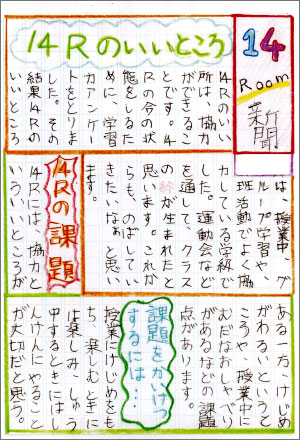 14
Room
新聞
14Rのいいところ
14Rのいい
所は、協力
ができるこ
とです。14
Rの今の状
態をしるた
めに、学習
力アンケー
トをとりま
した。その
結果14Rの
いいところ
は、授業中、グ
ループ学習や、
班活動でよく協
力している学級で
した。運動会など
を通して、クラス
の絆が生まれたと
思います。これか
らも、のばしてい
きたいなぁと思い
ます。
14Rの課題
14Rには、協力と
いういいところが
ある一方、けじめ
がわるいというと
ころや、授業中に
むだなおしゃべり
があるなどの課題
点があります。
課題をかいけつ
するには…
授業にけじめをも
ち、楽しむときに
は楽しみ、しゅう
中するときにはし
んけんにやること
が大切だと思う。